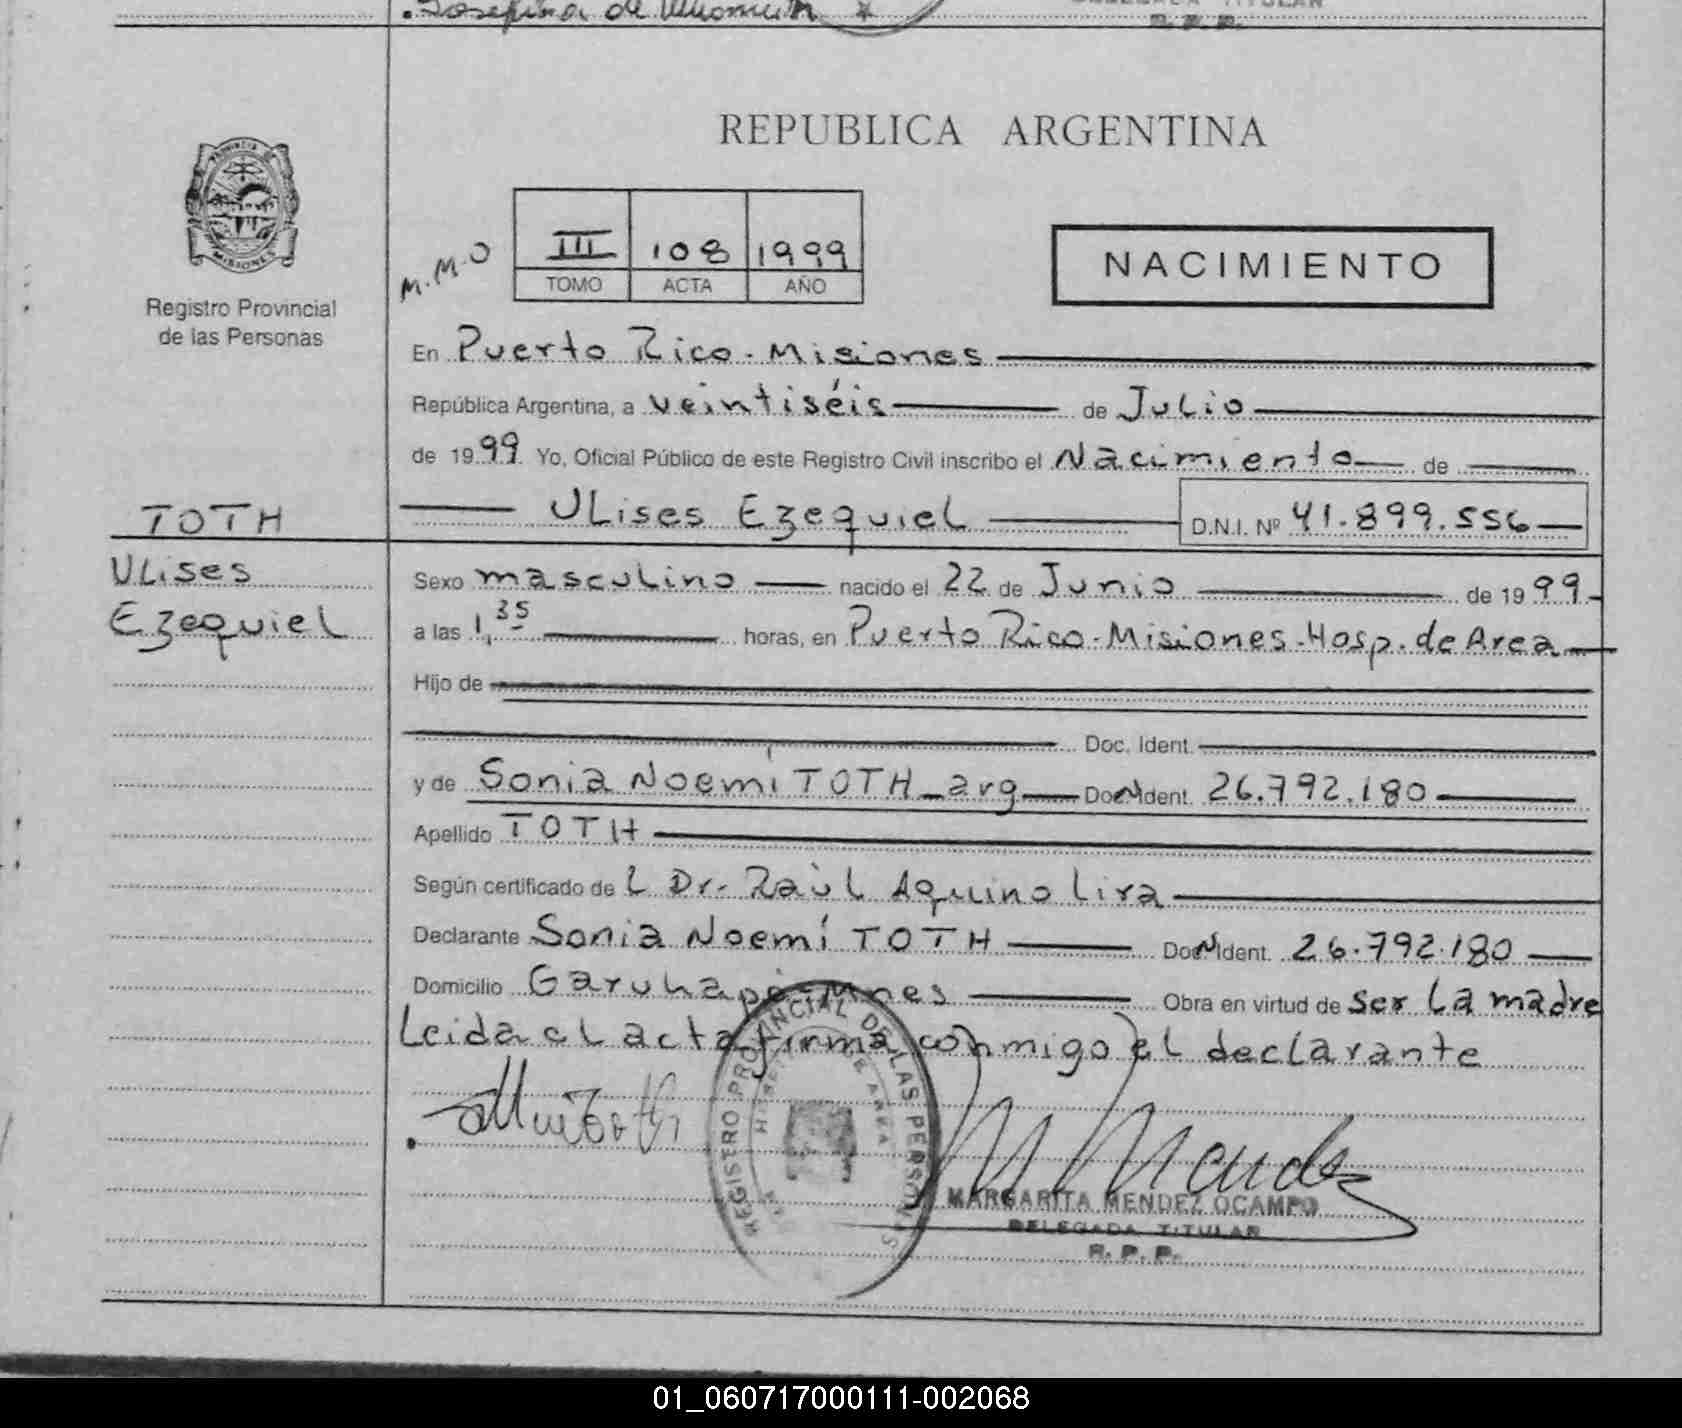 Josefina de
DELEGADA TITULAR
R. P. P.
REPUBLICA ARGENTINA
PROVINCIA DE
MISIONES
Registro Provincial
de las Personas
M.M.O
III 108 1999
TOMO ACTA AÑO
NACIMIENTO
En Puerto Rico - Misiones
República Argentina, a veintiséis de Julio
de 1999 Yo, Oficial Público de este Registro Civil inscribo el Nacimiento de
Ulises Ezequiel D.N.I. Nº 41.899.556
TOTH
Ulises
Ezequiel
Sexo masculino nacido el 22 de Junio de 1999
a las 1,35 horas, en Puerto Rico - Misiones - Hosp. de Area
Hijo de
Doc. Ident.
y de Sonia Noemí TOTH _ arg Doc. Ident. 26.792.180
Apellido TOTH
Según certificado de L Dr. Raùl Aquino Lira
Declarante Sonia Noemí TOTH Doc. Ident. 26.792.180
Domicilio Garuhapé - Mnes Obra en virtud de ser la madre
Leida el acta firma conmigo el declarante
REGISTRO PROVINCIAL DE LAS PERSONAS
M Mendez
MARGARITA MENDEZ OCAMPO
DELEGADA TITULAR
R. P. P.
01_060717000111-002068